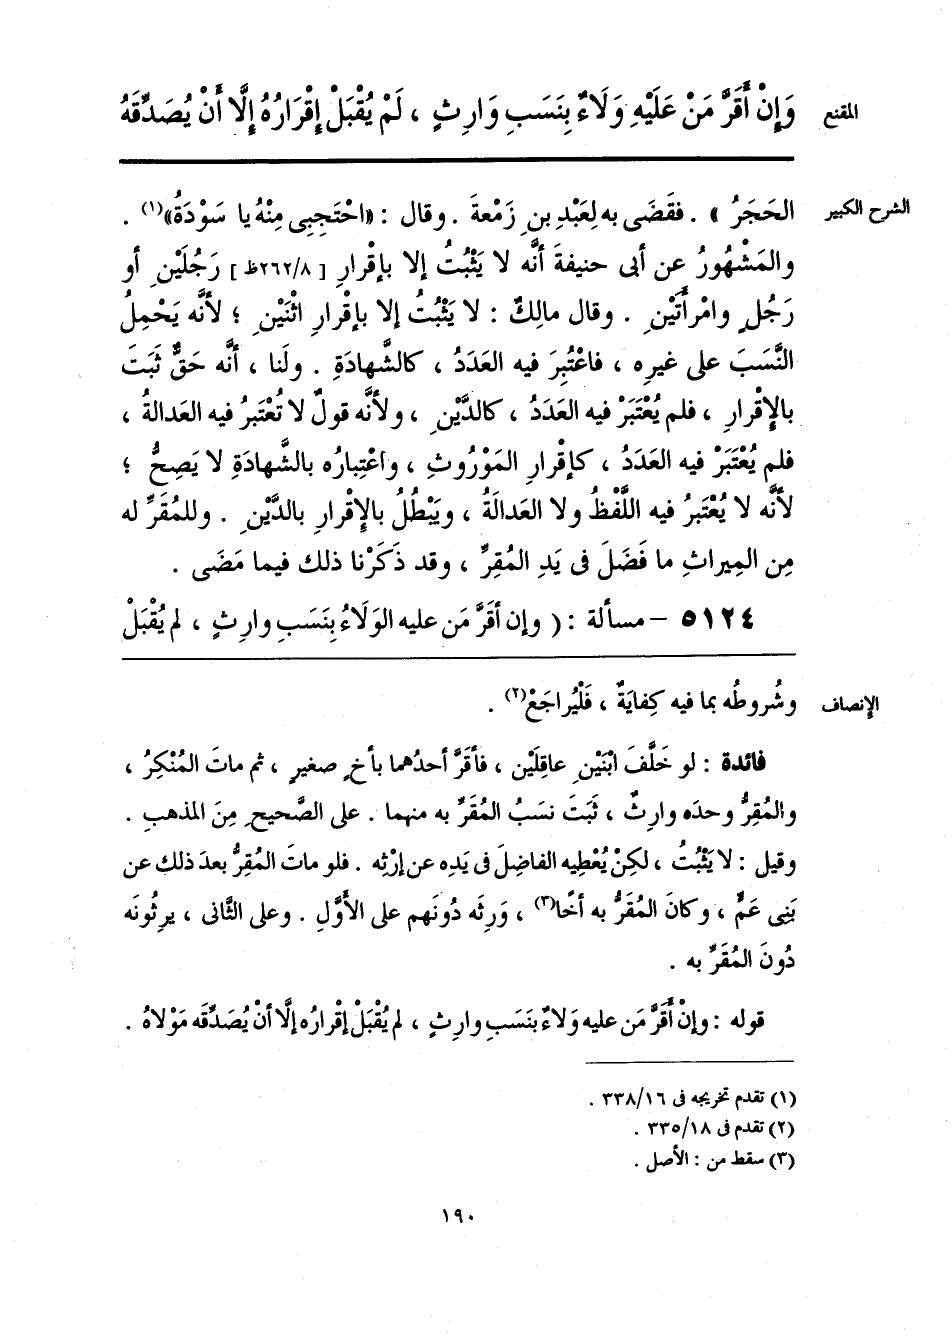 المقنع وَإِنْ أَقَرَّ مَنْ عَلَيْهِ وَلَاءٌ بِنَسَبِ وَارِثٍ ، لَمْ يُقْبَلْ إِقْرَارُهُ إِلَّا أَنْ يُصَدِّقَهُ
الشرح الكبير الحَجَرُ » . فقَضَى به لِعَبْدِ بنِ زَمْعةَ . وقال : «احْتَجِبِى مِنْهُ يا سَوْدَةُ»(١) .
والمَشْهُورُ عن أبى حنيفةَ أنَّه لا يَثْبُتُ إلا بإقْرارِ [ ٢٦٢/٨ظ ] رَجُلَيْنِ أو
رَجُلٍ وامْرأتَيْنِ . وقال مالِكٌ : لا يَثْبُتُ إلا بإقْرارِ اثْنَيْنِ ؛ لأنَّه يَحْمِلُ
النَّسَبَ على غيرِه ، فاعْتُبِرَ فيه العَدَدُ ، كالشَّهادَةِ . ولَنا ، أنَّه حَقٌّ ثَبَتَ
بالإِقْرارِ ، فلم يُعْتَبَرْ فيه العَدَدُ ، كالدَّيْنِ ، ولأنَّه قولٌ لا تُعْتَبَرُ فيه العَدالةُ ،
فلم يُعْتَبَرْ فيه العَدَدُ ، كإقْرارِ المَوْرُوثِ ، واعْتِبارُه بالشَّهادَةِ لا يَصِحُّ ؛
لأنَّه لا يُعْتَبَرُ فيه اللَّفْظُ ولا العَدالَةُ ، ويَبْطُلُ بالإِقْرارِ بالدَّيْنِ . وللمُقَرِّ له
مِن المِيراثِ ما فَضَلَ فى يَدِ المُقِرِّ ، وقد ذَكَرْنا ذلك فيما مَضَى .
٥١٢٤ – مسألة : ( وإن أقَرَّ مَن عليه الوَلَاءُ بِنَسَبِ وارِثٍ ، لم يُقْبَلْ
الإنصاف وشُروطُه بما فيه كِفايَةٌ ، فَلْيُراجَعْ(٢) .
فائدة : لو خَلَّفَ ابْنَيْنِ عاقِلَيْن ، فأقَرَّ أحدُهما بأخٍ صغيرٍ ، ثم ماتَ المُنْكِرُ ،
والمُقِرُّ وحدَه وارِثٌ ، ثَبَتَ نسَبُ المُقَرِّ به منهما . على الصَّحيحِ مِنَ المذهبِ .
وقيل : لا يَثْبُتُ ، لكِنْ يُعْطِيه الفاضِلَ فى يَدِه عن إرْثِه . فلو ماتَ المُقِرُّ بعدَ ذلك عن
بَنِى عَمٍّ ، وكانَ المُقَرُّ به أخًا(٣) ، وَرِثَه دُونَهم على الأَوَّلِ . وعلى الثَّانى ، يرِثُونَه
دُونَ المُقَرِّ به .
قوله : وإنْ أقَرَّ مَن عليه وَلاءٌ بنَسَبِ وارِثٍ ، لم يُقْبَلْ إقْرارُه إلَّا أنْ يُصَدِّقَه مَوْلاهُ .
(١) تقدم تخريجه فى ٣٣٨/١٦ .
(٢) تقدم فى ٣٣٥/١٨ .
(٣) سقط من : الأصل .
١٩٠